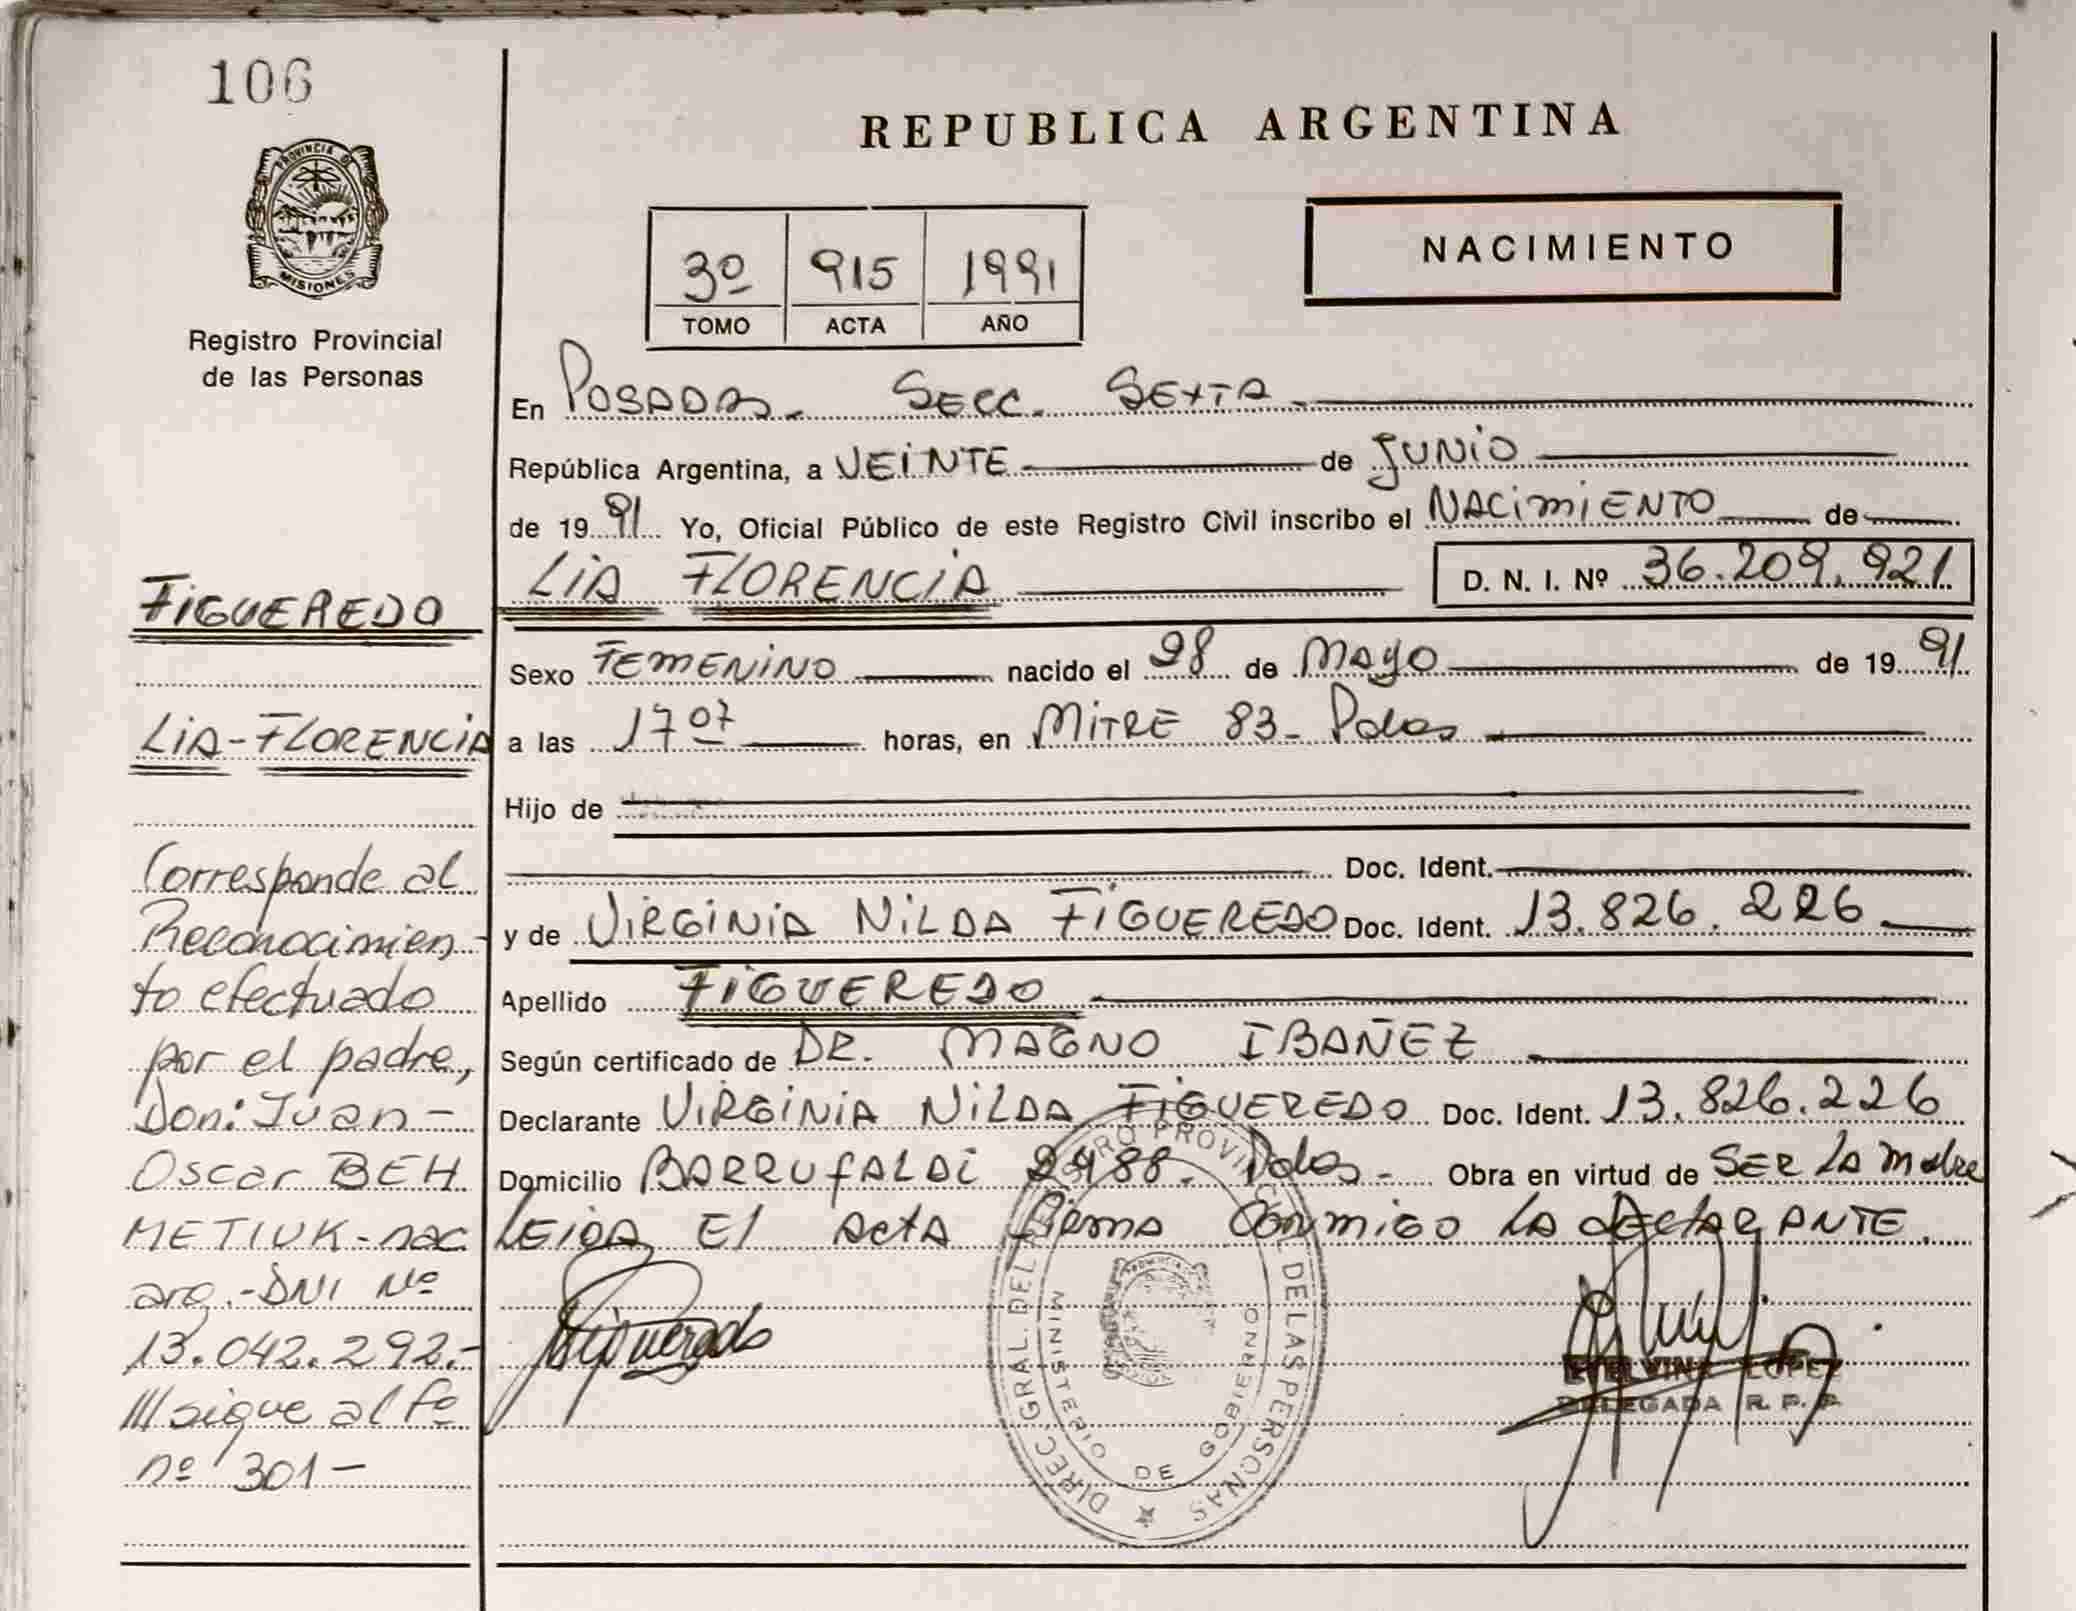 106
PROVINCIA DE
MISIONES
Registro Provincial
de las Personas
FIGUEREDO
LIA-FLORENCIA
Corresponde al
Reconocimien-
to efectuado
por el padre,
Don: Juan-
Oscar BEH.
METIUK-nac
arg.-DNI Nº
13.042.292.-
///sigue al fº
nº 301-
REPUBLICA ARGENTINA
3º 915 1991
TOMO ACTA AÑO
NACIMIENTO
En POSADAS. SECC. SEXTA.
República Argentina, a VEINTE de JUNIO
de 1991 Yo, Oficial Público de este Registro Civil inscribo el NACIMIENTO de
LIA FLORENCIA D. N. I. Nº 36.209.921
Sexo FEMENINO nacido el 28 de MAYO de 1991
a las 17 07 horas, en MITRE 83- Pdas
Hijo de
Doc. Ident.
y de VIRGINIA NILDA FIGUEREDO Doc. Ident. 13.826.226
Apellido FIGUEREDO
Según certificado de DR. MAGNO IBAÑEZ
Declarante VIRGINIA NILDA FIGUEREDO Doc. Ident. 13.826.226
Domicilio BARRUFALDI 2488. Pdas- Obra en virtud de SER LA MADRE
LEIDA El ACTA firma CONMIGO LA dECLARANTE.
Figueredo
DIREC. GRAL. DEL REGISTRO PROVINCIAL DE LAS PERSONAS
MINISTERIO DE GOBIERNO
LOPEZ
DELEGADA R. P. P.